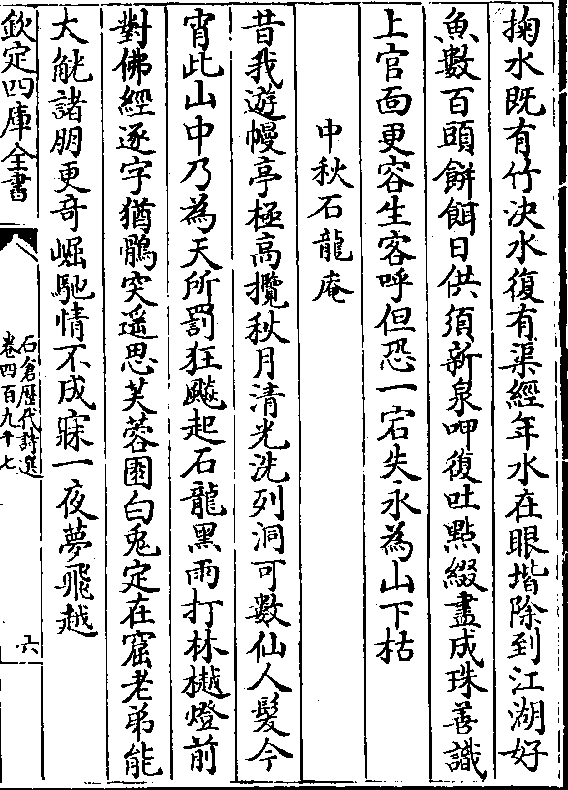 掬水既有竹决水復有渠經年水在眼堦除到江湖好
魚數百頭餅餌日供須新泉呷復吐㸃綴盡成珠善識
上官面更容生客呼但恐一宕失永為山下枯
中秋石龍庵
昔我遊幔亭極高攬秋月清光洗列洞可數仙人髮今
宵此山中乃為天所罰狂飈起石龍黑雨打林樾燈前
對佛經逐字猶鶻突遥思芙蓉園白兎定在窟老弟能
大觥諸朋更奇崛馳情不成寐一夜夢飛越
欽定四庫全書
石倉歴代詩選
卷四百九十七
六